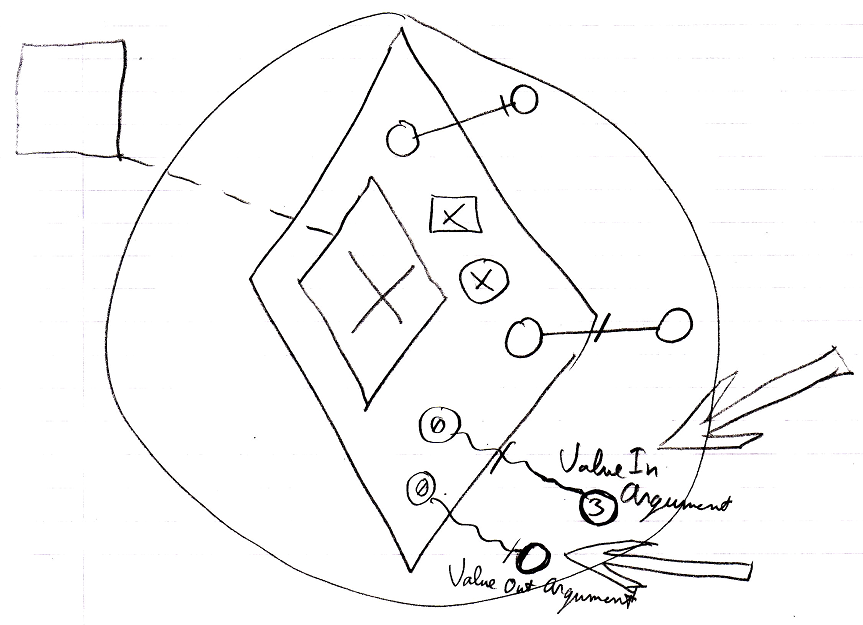 X
X
X
0
Value In
Argument
3
0
Value Out Argument